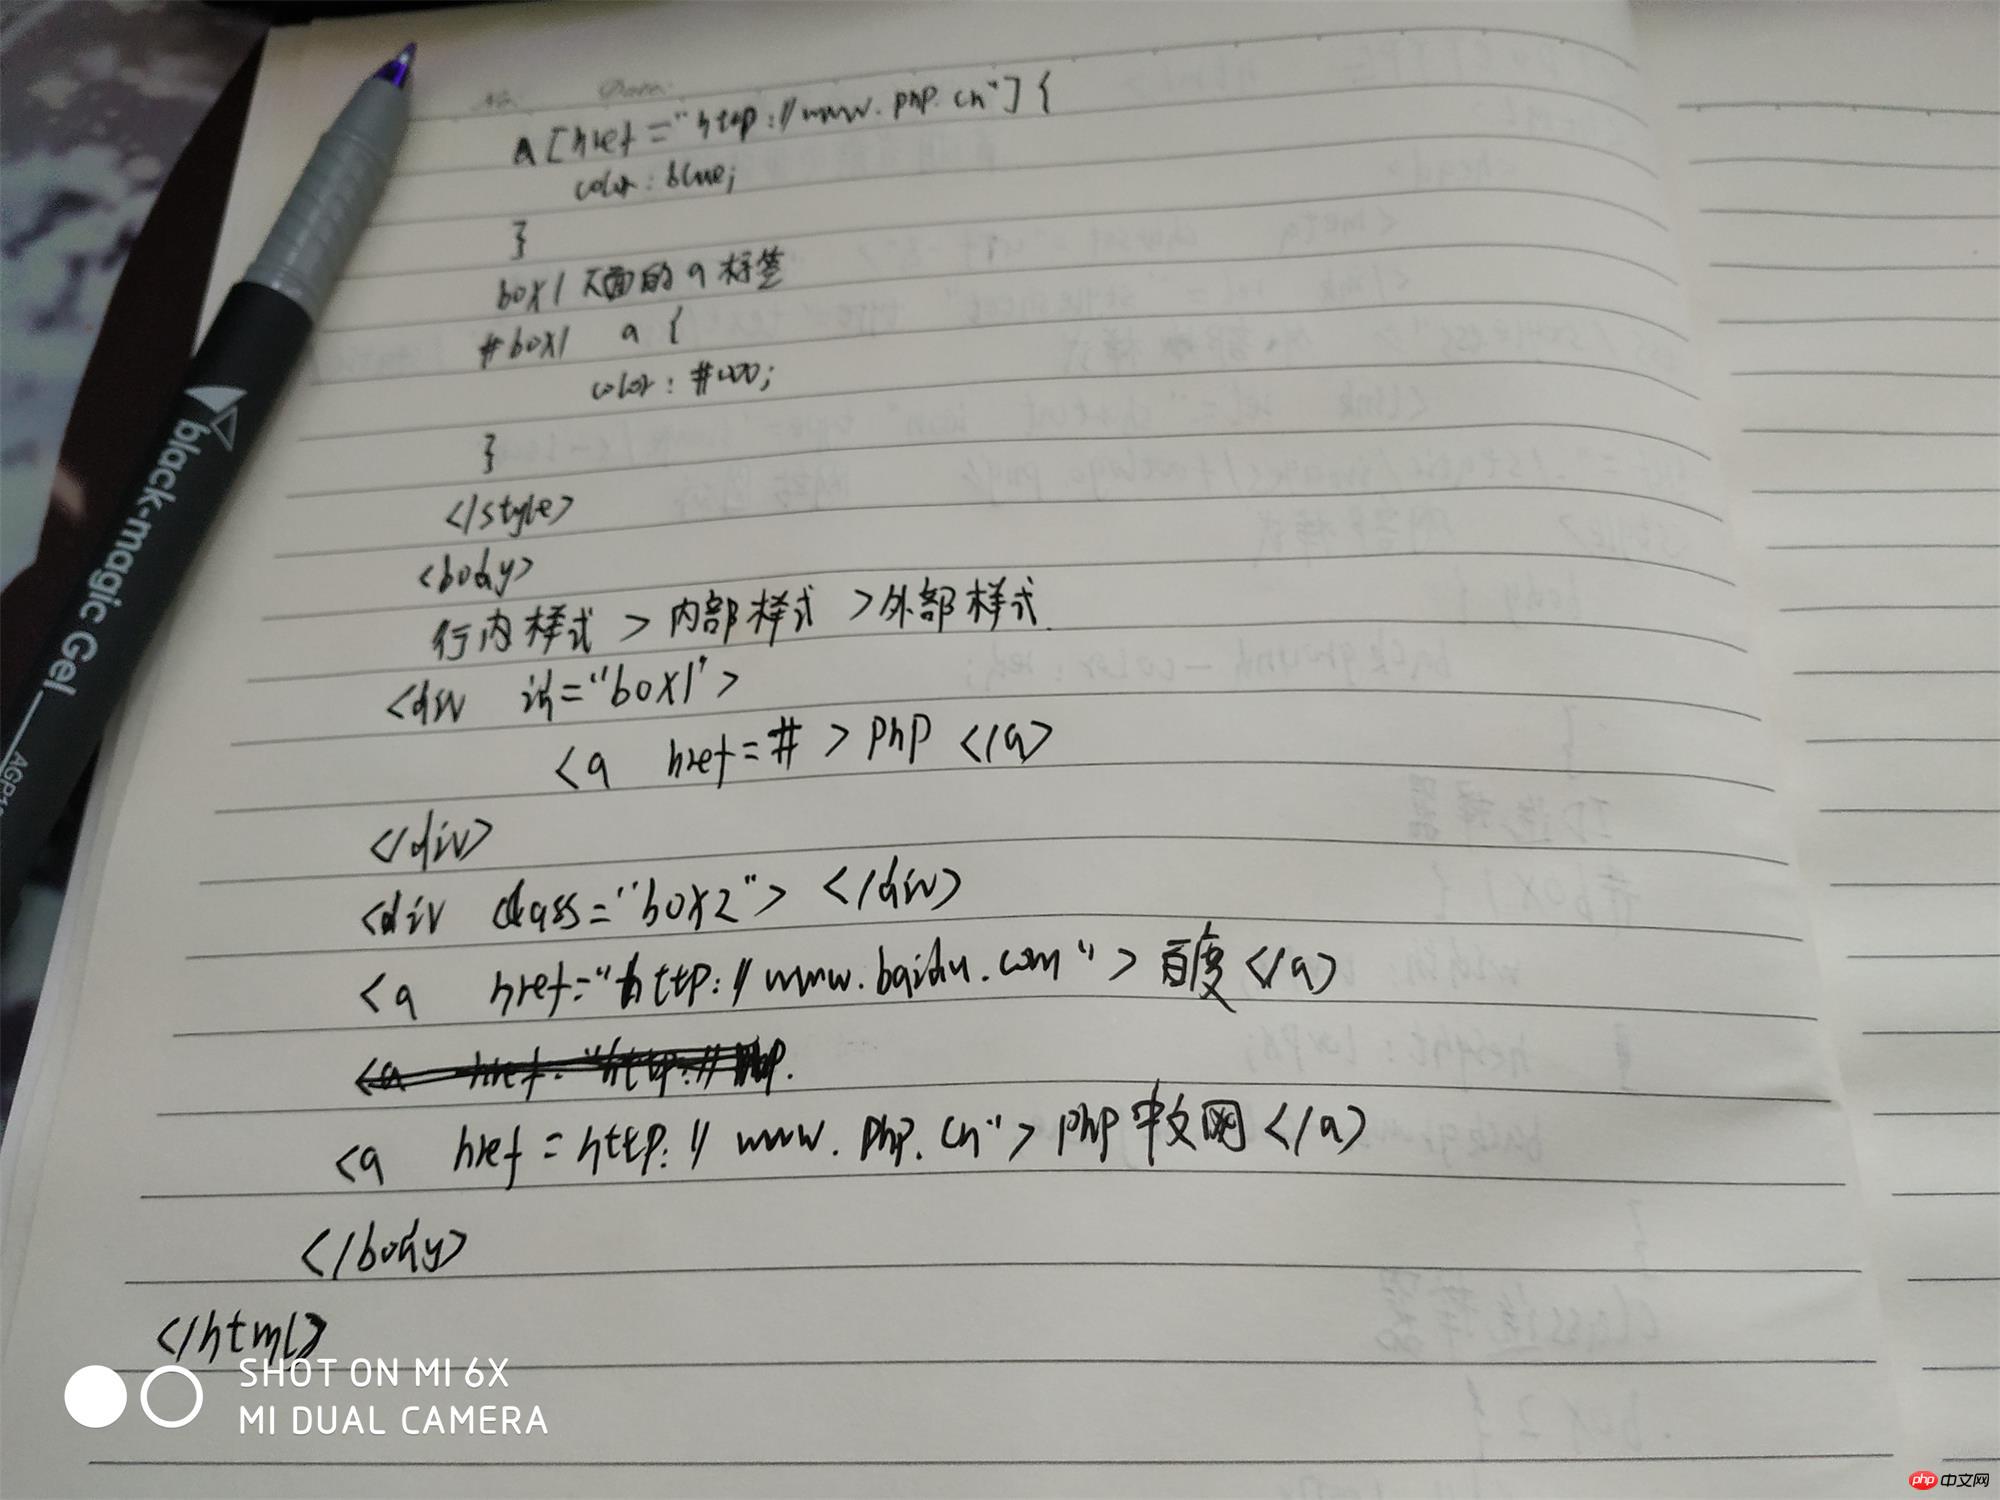 No. Date.
a [href="http://www.php.cn"] {
color: blue;
}
box1 下面的 a 标签
#box1 a {
color: #000;
}
</style>
<body>
行内样式 > 内部样式 > 外部样式
<div id="box1">
<a href=#> php </a>
</div>
<div class="box2"> </div>
<a href="http://www.baidu.com"> 百度 </a>
<a href="http://php.
<a href=http://www.php.cn"> php中文网 </a>
</body>
</html>
black-magic Gel
SHOT ON MI 6X
MI DUAL CAMERA
php 中文网